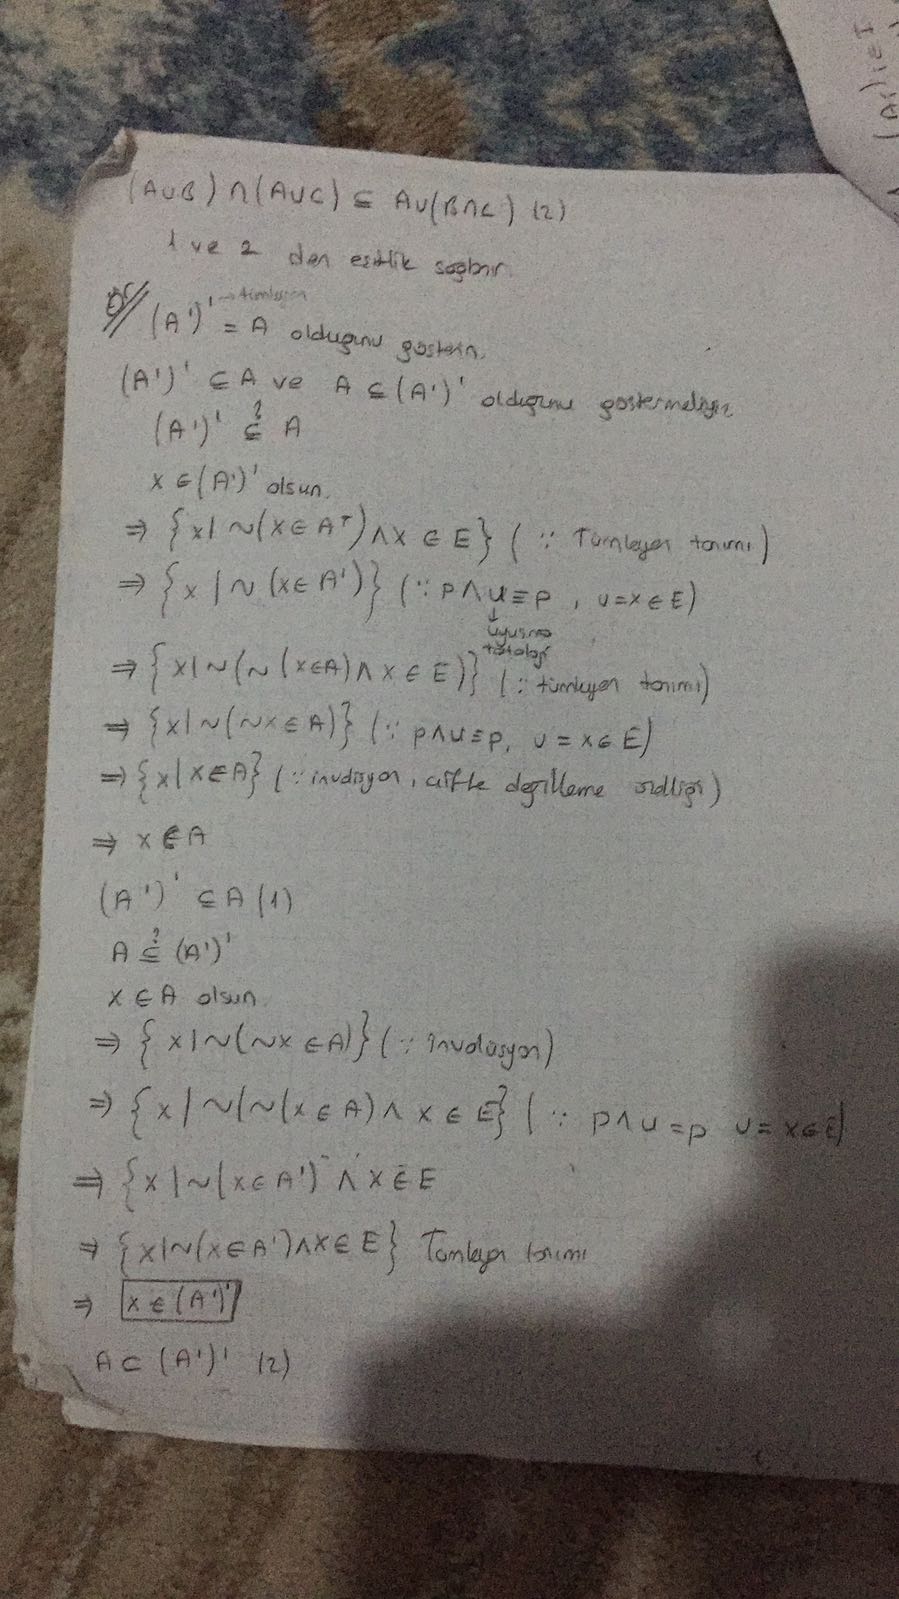 (A∪B) ∩ (A∪C) ⊆ A∪(B∩C) (2)
1 ve 2 den eşitlik sağlanır.
ÖR// (A')' → tümleyen = A olduğunu gösterin.
(A')' ⊆ A ve A ⊆ (A')' olduğunu göstermeliyiz
(A')' ⊆? A
x ∈ (A')' olsun.
⇒ {x | ~(x ∈ A') ∧ x ∈ E} (∵ Tümleyen tanımı)
⇒ {x | ~(x ∈ A')} (∵ p ∧ u ≡ p, u = x ∈ E)
↓
totoloji
⇒ {x | ~(~(x∈A) ∧ x ∈ E)} (∵ tümleyen tanımı)
⇒ {x | ~(~x ∈ A)} (∵ p∧u≡p, u = x ∈ E)
⇒ {x | x ∈ A} (∵ invulasyon, çifte değilleme özelliği)
⇒ x ∈ A
(A')' ⊆ A (1)
A ⊆? (A')'
x ∈ A olsun.
⇒ { x | ~(~x ∈ A)} (∵ invulasyon)
⇒ {x | ~(~(x ∈ A) ∧ x ∈ E} (∵ p∧u=p u = x ∈ E)
⇒ {x | ~(x ∈ A') ∧ x ∈ E
⇒ {x | ~(x ∈ A') ∧ x ∈ E} Tümleyen tanımı
⇒ x ∈ (A')'
A ⊂ (A')' (2)